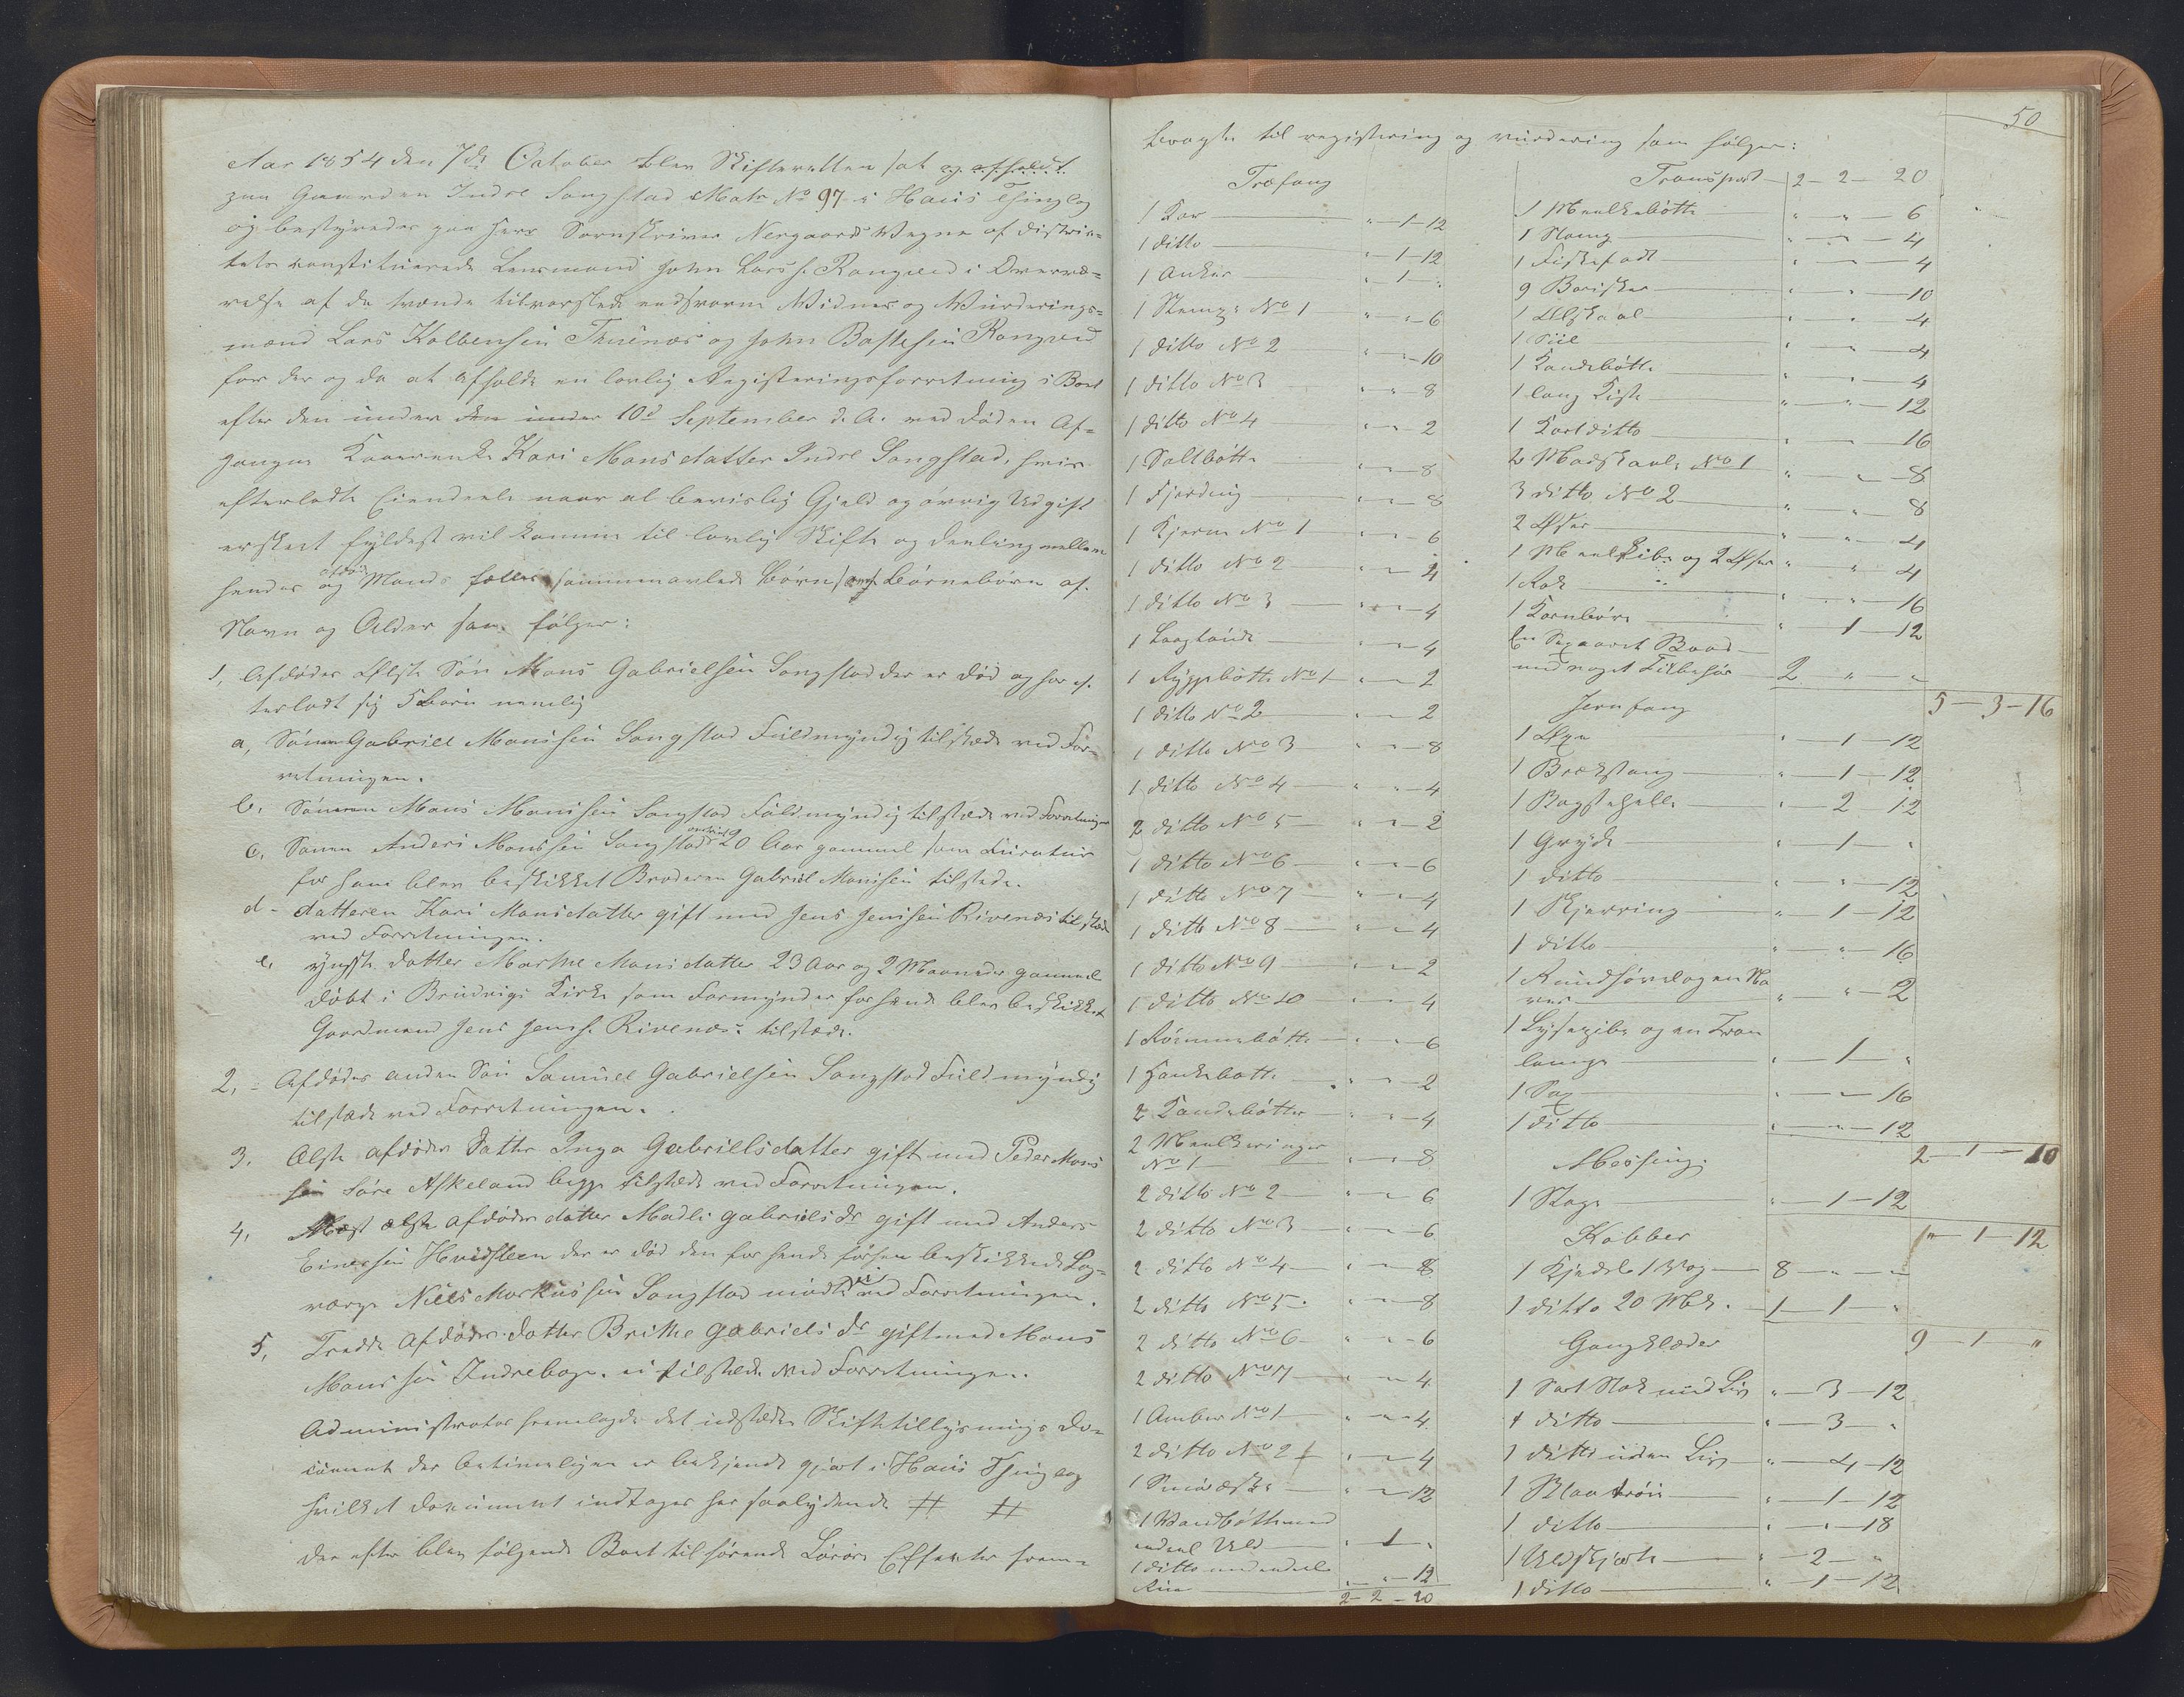 Aar 1854 den 7de October blev Skifteretten sat og afholdt
paa Gaarden Indre Songstad Matr No 97 i Haus Thinglag
og bestyredes paa Herr Sorenskriver Nergaards Vegne af Distric-
tets constituerede Lensmand John Larss. Rongved i Overvæ-
relse af de tvende tilforstede eedsvorne Vidner og Vurderings-
mænd Lars Kolbensen Thunæs og John Bastesen Rongved
for der og da at afholde en lovlig Registeringsforretning i Boet
efter den under den under 10d September d. A. ved Døden Af-
gangne Kaarenke Kari Monsdatter Indre Songstad, hvis
efterladte Eiendeele naar al bevislig Gjeld og øvrig Udgift
er skeet fyldest vil komme til lovlig Skifte og Deeling mellem
hendes og afdøde Mands fælles sammenavlede Børn samt Børnebørn af
Navn og Alder som følger:
1, Afdødes Ælste Søn Mons Gabrielsen Songstad der er død og har ef-
terladt sig 5 Børn nemlig
a, Sønnen Gabriel Monsen Songstad Fuldmyndig tilstæde ved For-
retningen.
b. Sønnen Mons Monsen Songstad Fuldmyndig tilstæde ved Forretningen
c. Sønen Anders Monssen Songstad 20 Aar gammel som Curator
for ham blev beskikket Broderen Gabriel Monsen tilstede.
d - datteren Kari Monsdatter gift med Jens Jensen Rivenæs tilstæde
ved Forretningen.
e, yngste datter Marthe Monsdatter 23 Aar og 2 Maaneder gammel
døbt i Bruvigs Kirke som Formynder for hende blev beskikket
Gaardmand Jens Jenss. Rivenæs tilstæde.
2, - Afdødes anden Søn Samuel Gabrielsen Songstad Fuldmyndig
tilstæde ved Forretningen.
3. Ælste afdødes Datter Inga Gabrielsdatter gift med Peder Mons
sen Søre Askeland begge tilstæde ved Forretningen.
4, Næst ælste afdødes datter Madli Gabriels dr gift med Anders
Einersen Hvidsteen der er død den for hende førhen beskikkede Lag-
værge Niels Markussen Songstad mødte ei ved Forretningen.
5, Tredde Afdødes datter Brithe Gabriels dr gift med Mons
Mons sen Indrebøge. ei tilstæde ved Forretningen.
Administrator fremlagde det udstædte Skiftetillysnings Do-
cument der betimeligen er bekjendt gjort i Haus Thinglag
hvilket Document indtages her saalydende # #
Derefter blev følgende Boet tilhørende Løsøre Effecter frem-
50
bragte til registering og vurdering som følger:
Træfang
1 Kar " - 1 - 12
1 ditto " - 1 - 12
1 Anker " - 1 - "
1 Stamp No 1 " - " - 6
1 ditto No 2 " - " - 10
1 ditto No 3 " - " - 8
1 ditto No 4 " - " - 2
1 Saltbøtte " - " - 8
1 Fjerding " - " - 8
1 Kjerne No 1 " - " - 6
1 ditto No 2 " - " - 4
1 ditto No 3 " - " - 4
1 " - " - 4
1 No 1 " - " - 2
1 ditto No 2 " - " - 2
1 ditto No 3 " - " - 8
1 ditto No 4 " - " - 4
2 ditto No 5 " - " - 2
1 ditto No 6 " - " - 6
1 ditto No 7 " - " - 4
1 ditto No 8 " - " - 4
1 ditto No 9 " - " - 2
1 ditto No 10 " - " - 4
1 Rømmebøtte " - " - 6
1 Hankebøtte " - " - 2
2 Vandbøtter " - " - 4
2 Meelkeringer
No 1 " - " - 8
2 ditto No 2 " - " - 6
2 ditto No 3 " - " - 6
2 ditto No 4 " - " - 8
2 ditto No 5 " - " - 8
2 ditto No 6 " - " - 6
2 ditto No 7 " - " - 4
1 Ambar No 1 " - " - 4
2 ditto No 2 " - " - 4
1 " - " - 12
1 Vandbøtte med
endeel Uld " - 1 - "
1 ditto med endeel
" - " - 12
2 - 2 - 20
Transport 2 - 2 - 20
1 Meelkebøtte " - " - 6
1 " - " - 4
1 Fiskefadt " - " - 4
9 " - " - 10
1 Ølskaal " - " - 4
1 Siil " - " - 4
1 Vandbøtte " - " - 4
1 lang Kiste " - " - 12
1 Kort ditto " - " - 16
2 Madskaale No 1 " - " - 8
3 ditto No 2 " - " - 8
2 Øser " - " - 4
1 og 2 Øser " - " - 4
1 Rok " - " - 16
1 Kornbøre " - 1 - 12
En Sexaaret Baad
med noget Tilbehør 2 " - "
5 - 3 - 16
Jernfang
1 Øxe " - 1 - 12
1 Brækstang " - 1 - 12
1 Bagstehelle " - 2 - 12
1 Gryde " - 1 - "
1 ditto " - " - 12
1 Skjæring " - 1 - 12
1 ditto " - " - 16
1 Rundhøvel og en Na
ver " - " - 2
1 Lysepibe og en Tran
lampe " - 1 - "
1 Sax " - " - 16
1 ditto " - " - 12
2 - 1 - 10
Messing
1 Stage " - 1 - 12
" - 1 - 12
Kobber
1 Kjedel 1 Vog 8 - " - "
1 ditto 20 Mkr. 1 - 1 - "
9 - 1 - "
Gangklæder
1 Sort Stak med Liv " - 3 - 12
1 ditto " - 3 - "
1 ditto uden Liv " - 4 - 12
1 Blaa trøie " - 1 - 12
1 ditto " - " - 18
1 Uldskjorte " - 2 - "
1 ditto " - 1 - 12